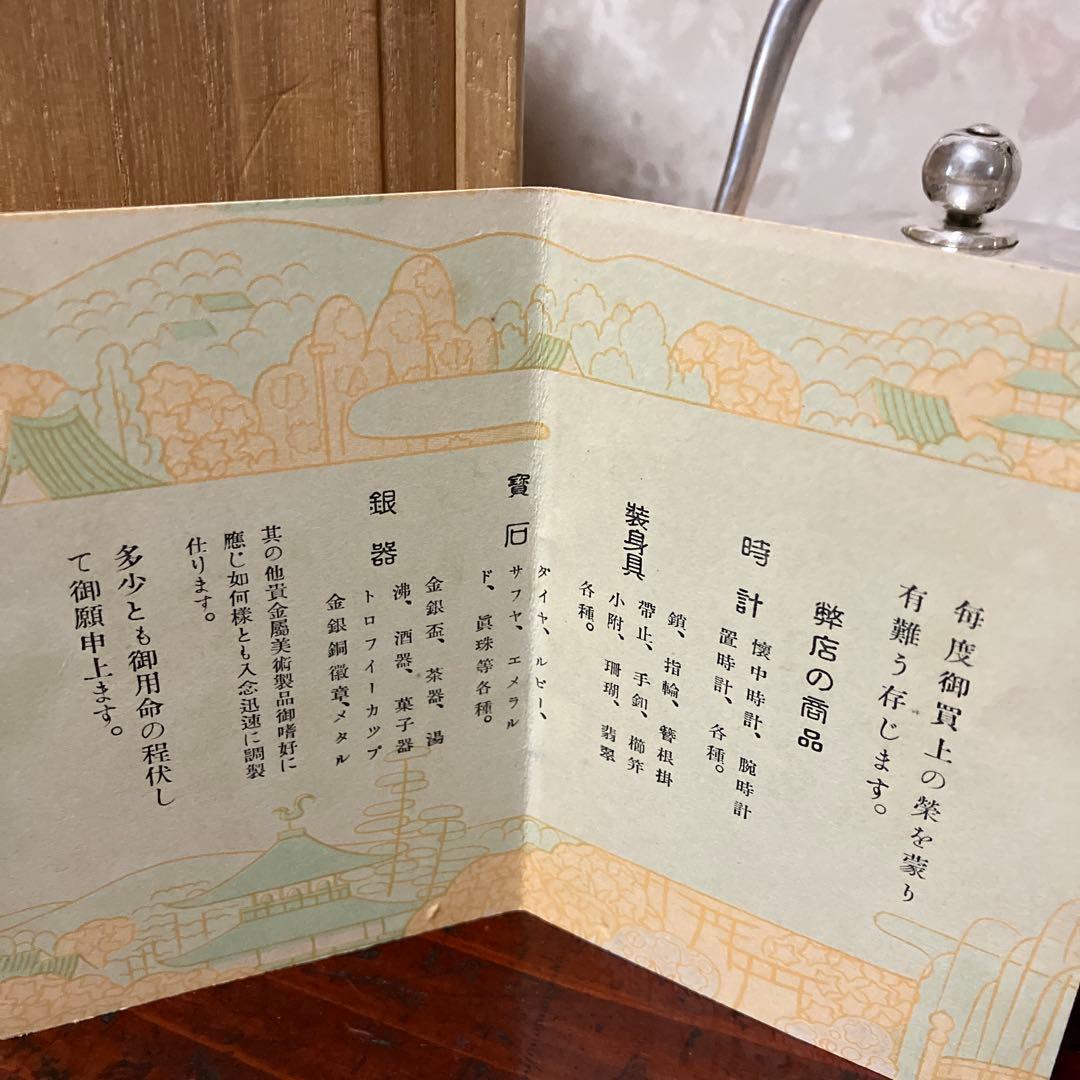 毎度御買上の榮を蒙り
有難う存じます。
弊店の商品
時計
懷中時計、腕時計
置時計、各種。
裝身具
鎖、指輪、簪根掛
帶止、手釦、櫛笄
小附、珊瑚、翡翠
各種。
寶石
ダイヤ、ルビー、
サフヤ、エメラル
ド、眞珠等各種。
銀器
金銀盃、茶器、湯
沸、酒器、菓子器
トロフイーカップ
金銀銅徽章、メタル
其の他貴金屬美術製品御嗜好に
應じ如何樣とも入念迅速に調製
仕ります。
多少とも御用命の程伏し
て御願申上ます。